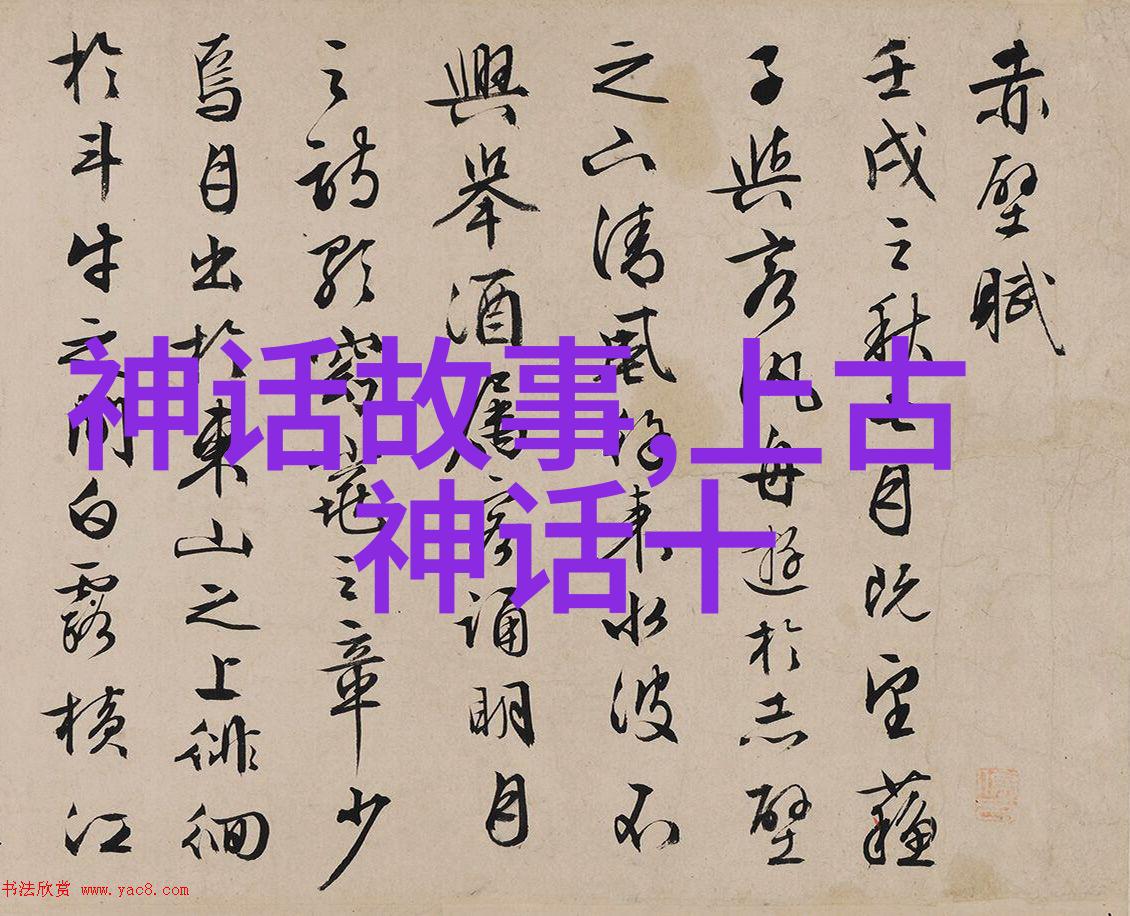 赤壁賦
壬戌之秋七月既望蘇
子與客汎舟遊於赤壁
之下清風徐來水波不
興舉酒屬客誦明月
之詩歌窈窕之章少
焉月出於東山之上徘徊
於斗牛之間白露橫江
神话故事,上古
神话十
书法欣赏 www.yac8.com